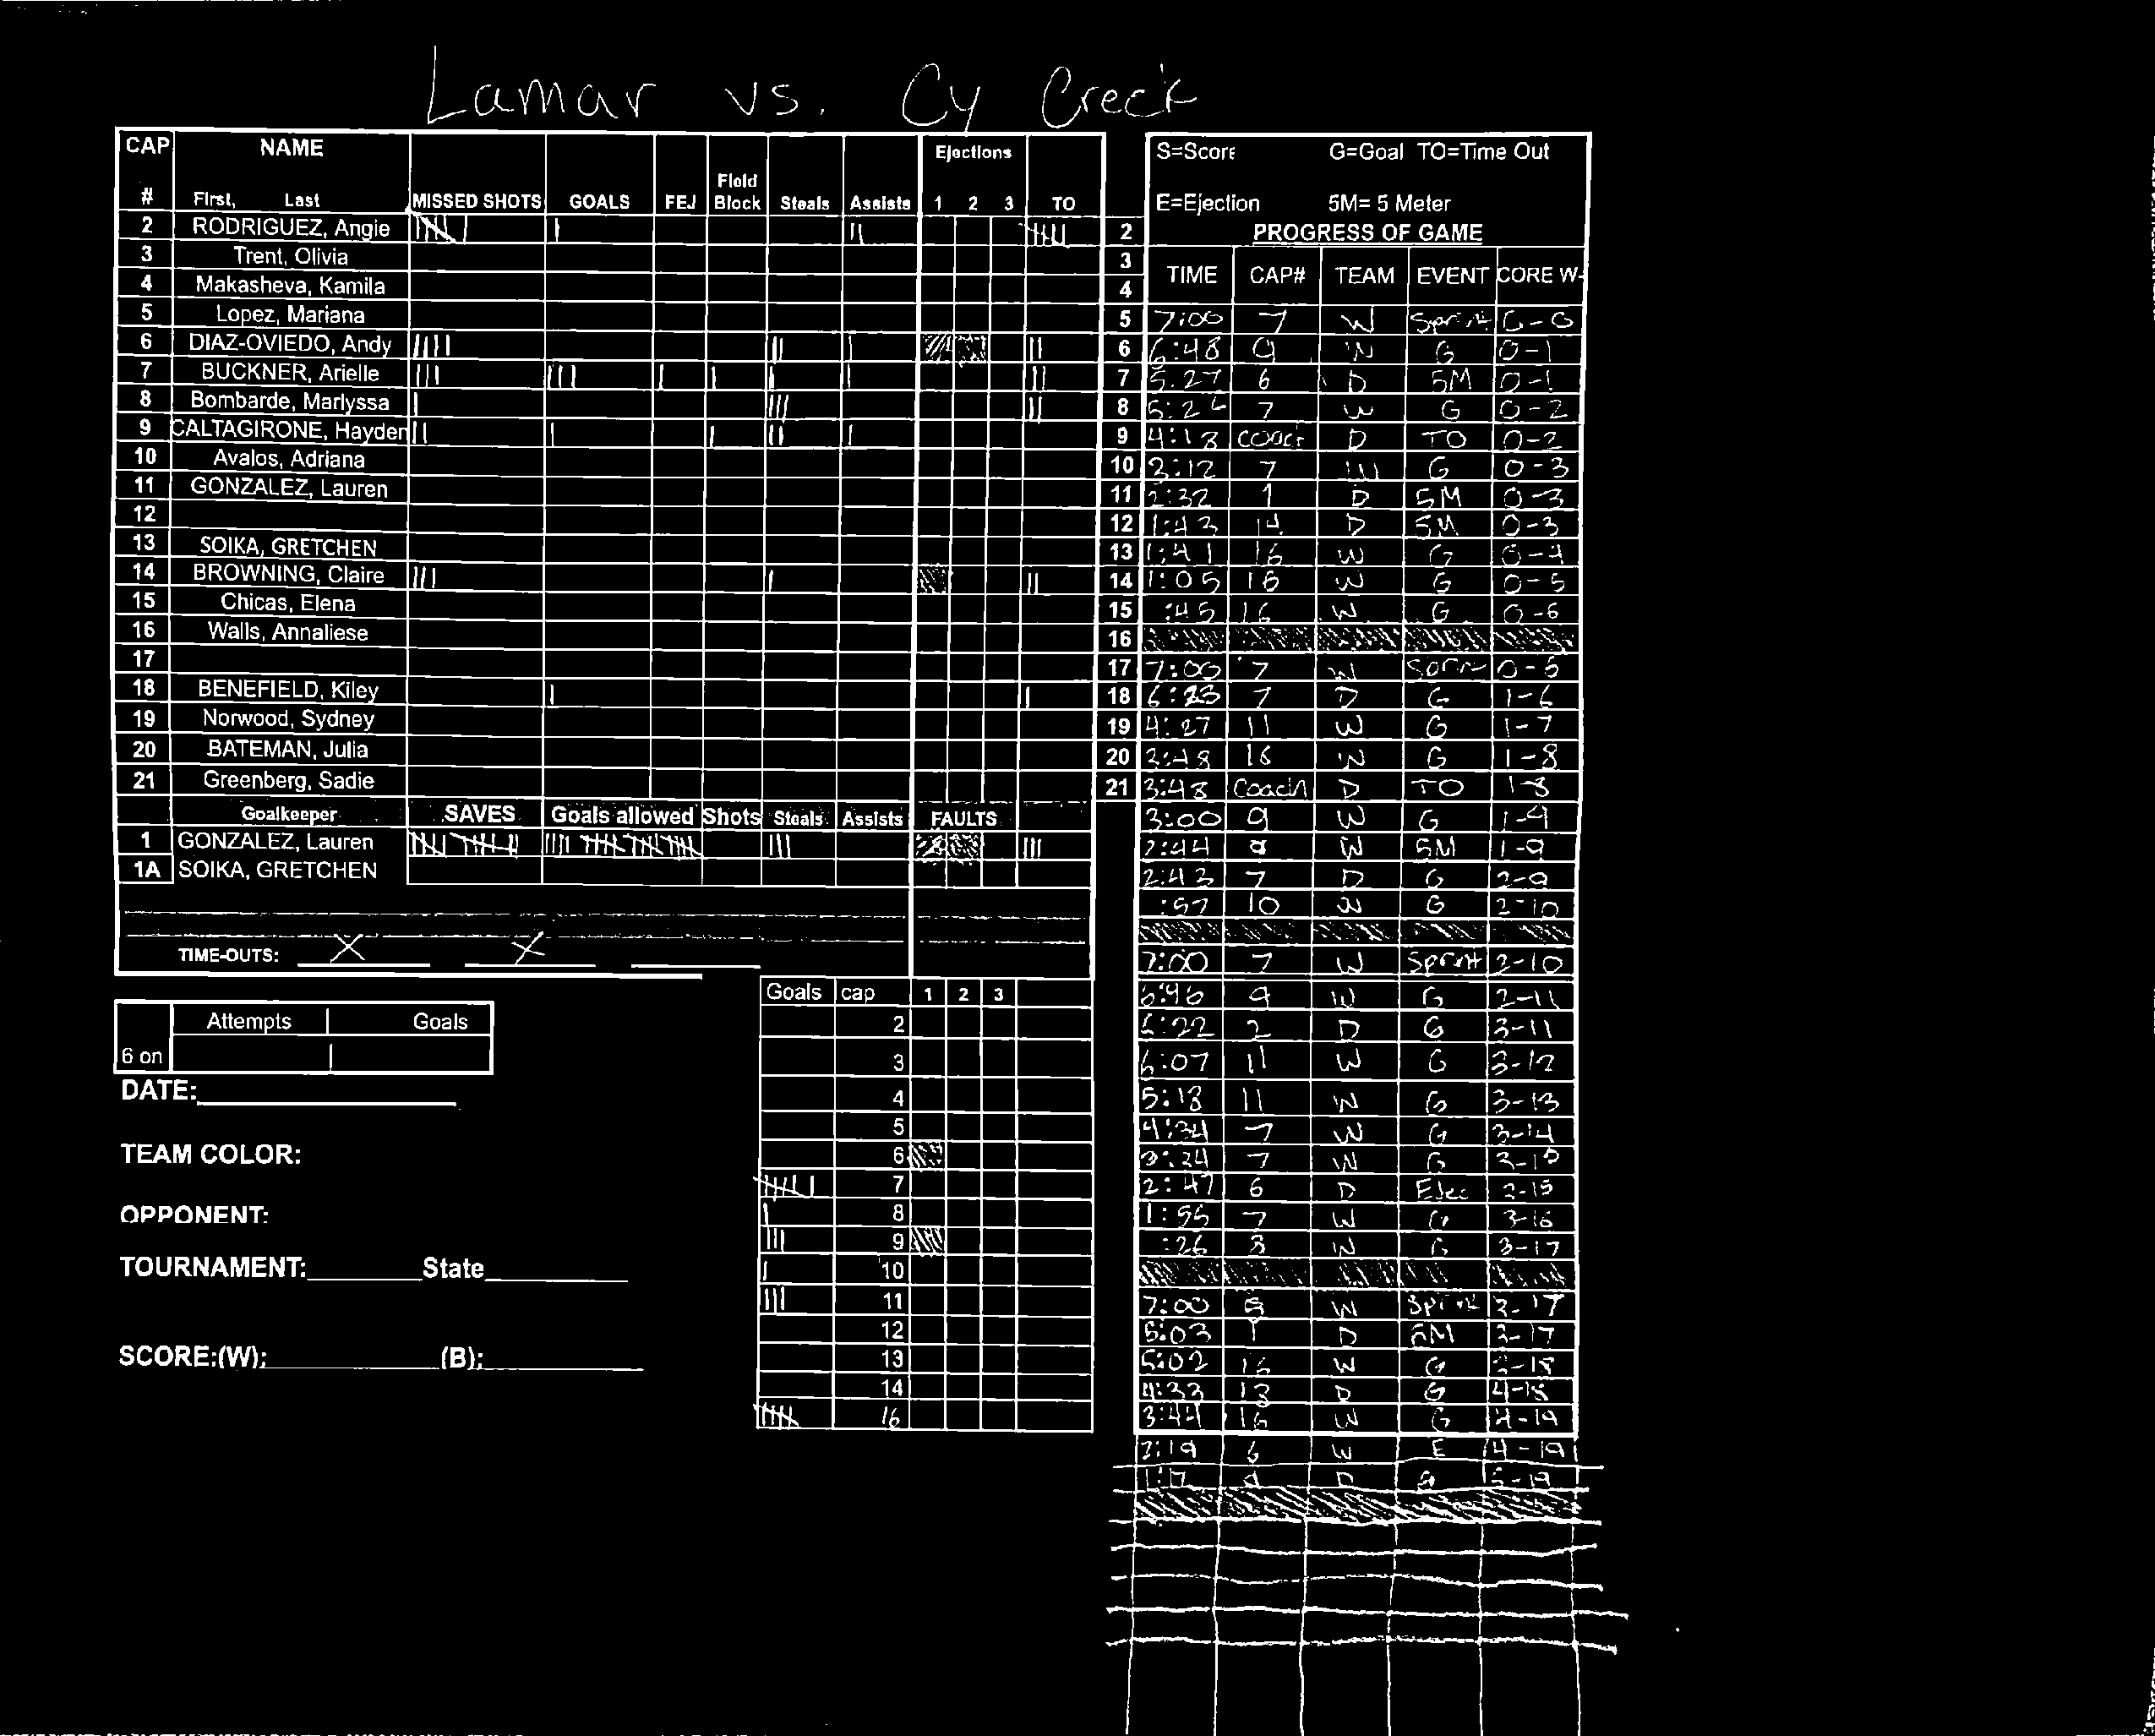 Lamar vs. Cy Creek
CAP # NAME First, Last MISSED SHOTS GOALS FEJ Field Block Steals Assists Ejections 1 2 3 TO
2 RODRIGUEZ, Angie
3 Trent, Olivia
4 Makasheva, Kamila
5 Lopez, Mariana
6 DIAZ-OVIEDO, Andy
7 BUCKNER, Arielle
8 Bombarde, Marlyssa
9 CALTAGIRONE, Hayden
10 Avalos, Adriana
11 GONZALEZ, Lauren
12
13 SOIKA, GRETCHEN
14 BROWNING, Claire
15 Chicas, Elena
16 Walls, Annaliese
17
18 BENEFIELD, Kiley
19 Norwood, Sydney
20 BATEMAN, Julia
21 Greenberg, Sadie
Goalkeeper SAVES Goals allowed Shots Steals Assists FAULTS
1 GONZALEZ, Lauren
1A SOIKA, GRETCHEN
TIME-OUTS: X X
Attempts Goals
6 on
DATE:
TEAM COLOR:
OPPONENT:
TOURNAMENT: State
SCORE:(W): (B):
Goals cap 1 2 3
2
3
4
5
6
7
8
9
10
11
12
13
14
16
S=Score G=Goal TO=Time Out
E=Ejection 5M= 5 Meter
PROGRESS OF GAME
TIME CAP# TEAM EVENT CORE W-
2
3
4
5 7:00 7 W Sprint 0-0
6 6:48 9 W G 0-1
7 5:27 6 D 5M 0-1
8 5:26 7 W G 0-2
9 4:18 coach D TO 0-2
10 3:12 7 W G 0-3
11 2:32 1 D 5M 0-3
12 1:43 14 D 5M 0-3
13 1:41 16 W G 0-4
14 1:05 16 W G 0-5
15 :45 16 W G 0-6
16
17 7:00 7 W 
18 6:23 7 D G 1-6
19 4:27 11 W G 1-7
20 3:48 16 W G 1-8
21 3:48 Coach D TO 1-8
3:00 9 W G 1-9
2:44 9 W 5M 1-9
2:43 7 D G 2-9
:57 10 W G 2-10
7:00 7 W Sprint 2-10
6:46 9 W G 2-11
6:22 2 D G 3-11
6:07 11 W G 3-12
5:13 11 W G 3-13
4:34 7 W G 3-14
3:24 7 W G 3-15
2:47 6 D Ejec 3-15
1:55 7 W G 3-16
:26 8 W G 3-17
7:00 W Sprint 3-17
5:03 1 D 5M 3-17
5:02 16 W G 3-18
4:33 13 D G 4-18
3:44 16 W G 4-19
2:19 6 W E 4-19
D G 5-19